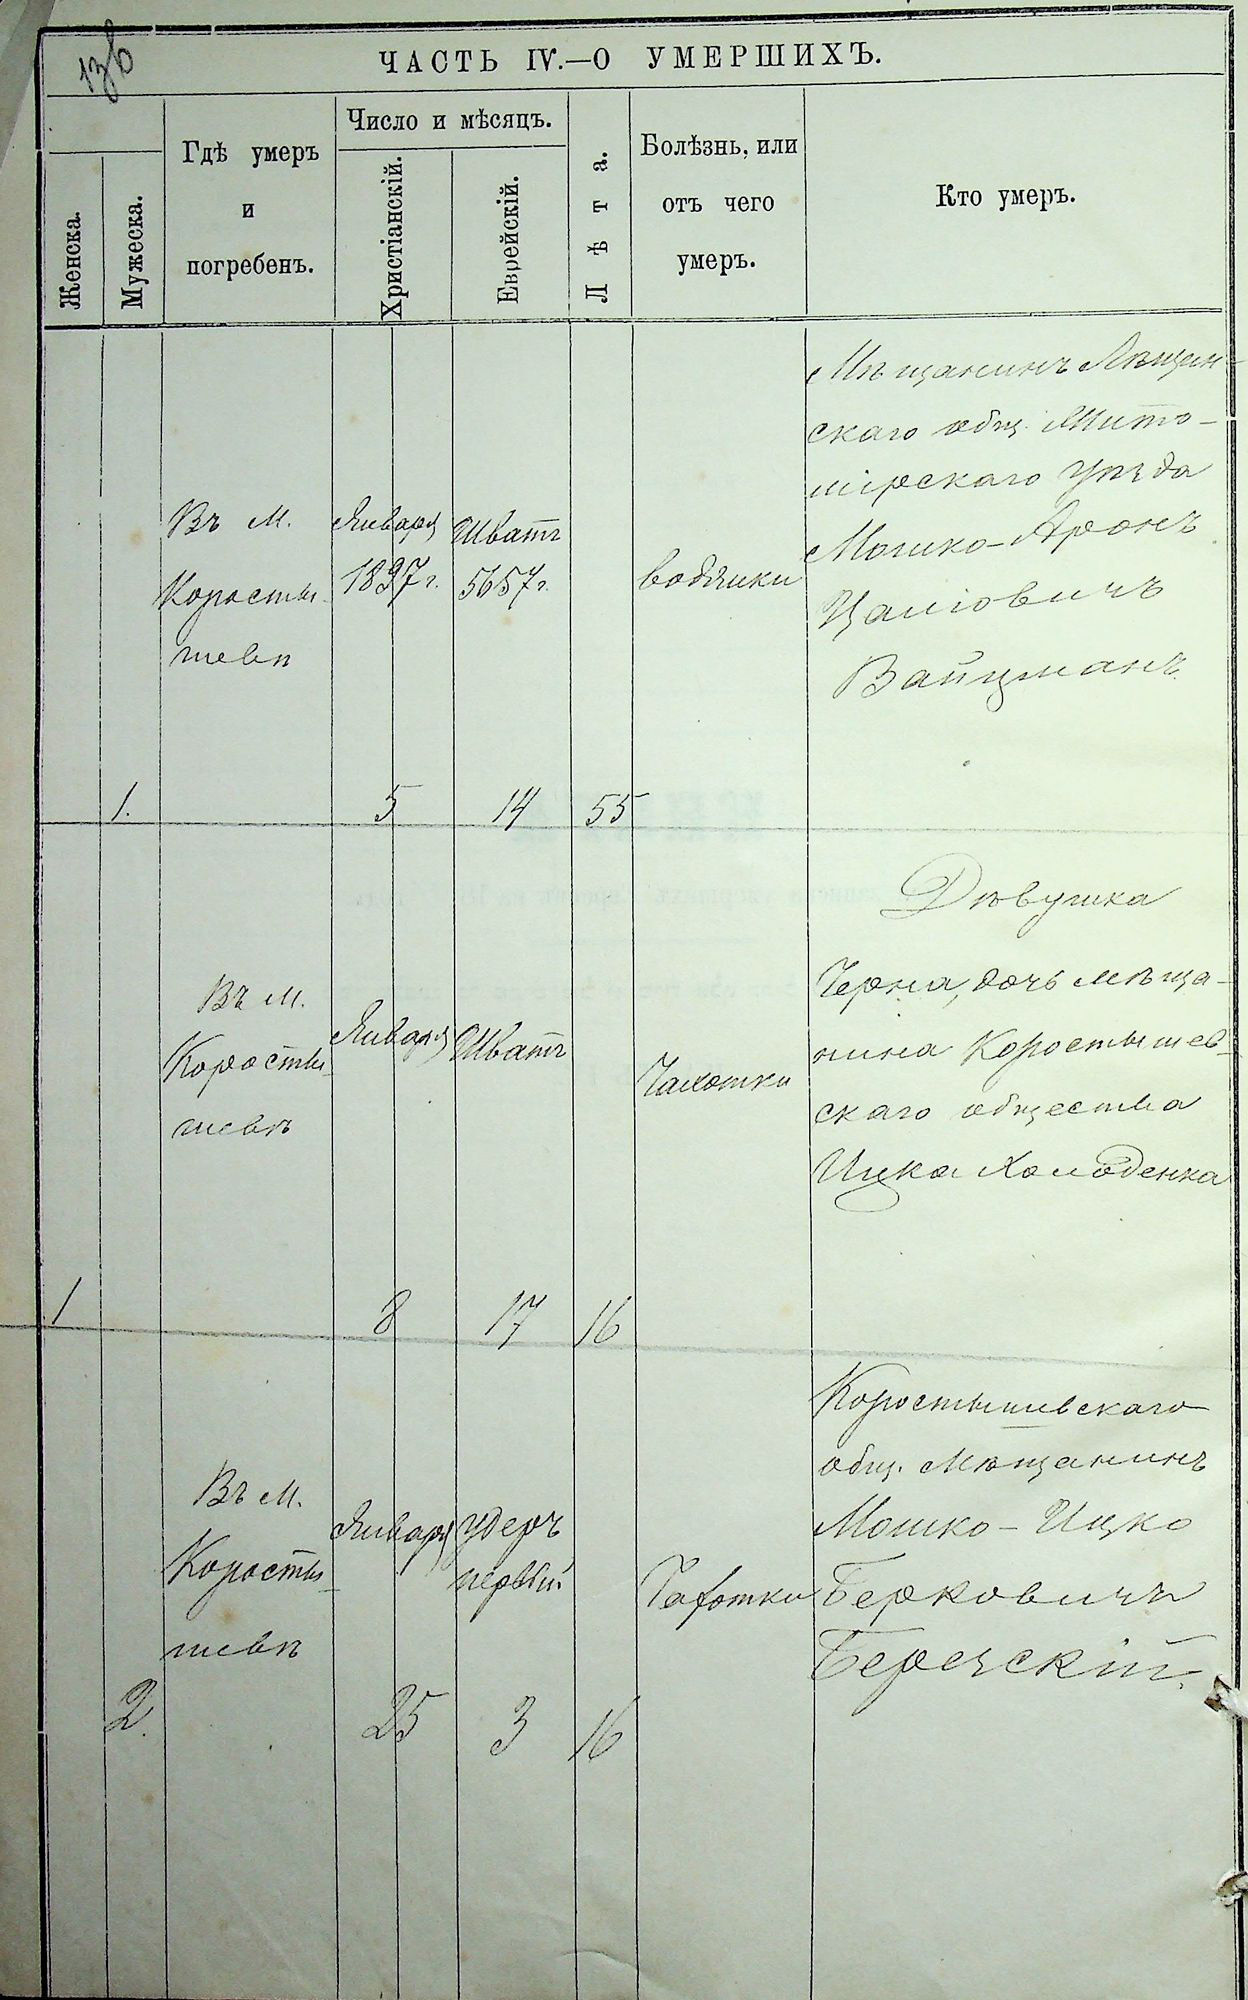 ЧАСТЬ IV.—О УМЕРШИХЪ.
Женска.
Мужеска.
Гдѣ умеръ
и
погребенъ.
Число и мѣсяцъ.
Христіанскій.
Еврейскій.
Лѣта.
Болѣзнь, или
отъ чего
умеръ.
Кто умеръ.
1.
Въ м.
Коросты-
шевѣ
Января
1897 г.
5
Шватъ
5657 г.
14
55
водянки
Мѣщанинъ Лѣщин-
скаго общ. Жито-
мірскаго уѣзда
Мошко-Аронъ
Цаліовичъ
Вайцманъ.
1
Въ м.
Коросты-
шевѣ
Января
8
Шватъ
17
16
Чахотки
Дѣвушка
Черна, дочь мѣща-
нина Коростышев-
скаго общества
Ицка Холоденка
2.
Въ м.
Коросты-
шевѣ
Января
25
удеръ
первый
3
16
Чахотки
Коростышевскаго
общ. мѣщанинъ
Мошко-Ицко
Берковичъ